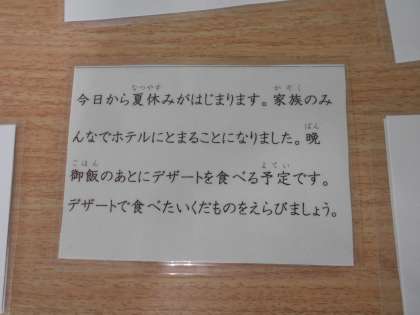 今日から夏休みがはじまります。家族のみ
んなでホテルにとまることになりました。晩
御飯のあとにデザートを食べる予定です。
デザートで食べたいくだものをえらびましょう。